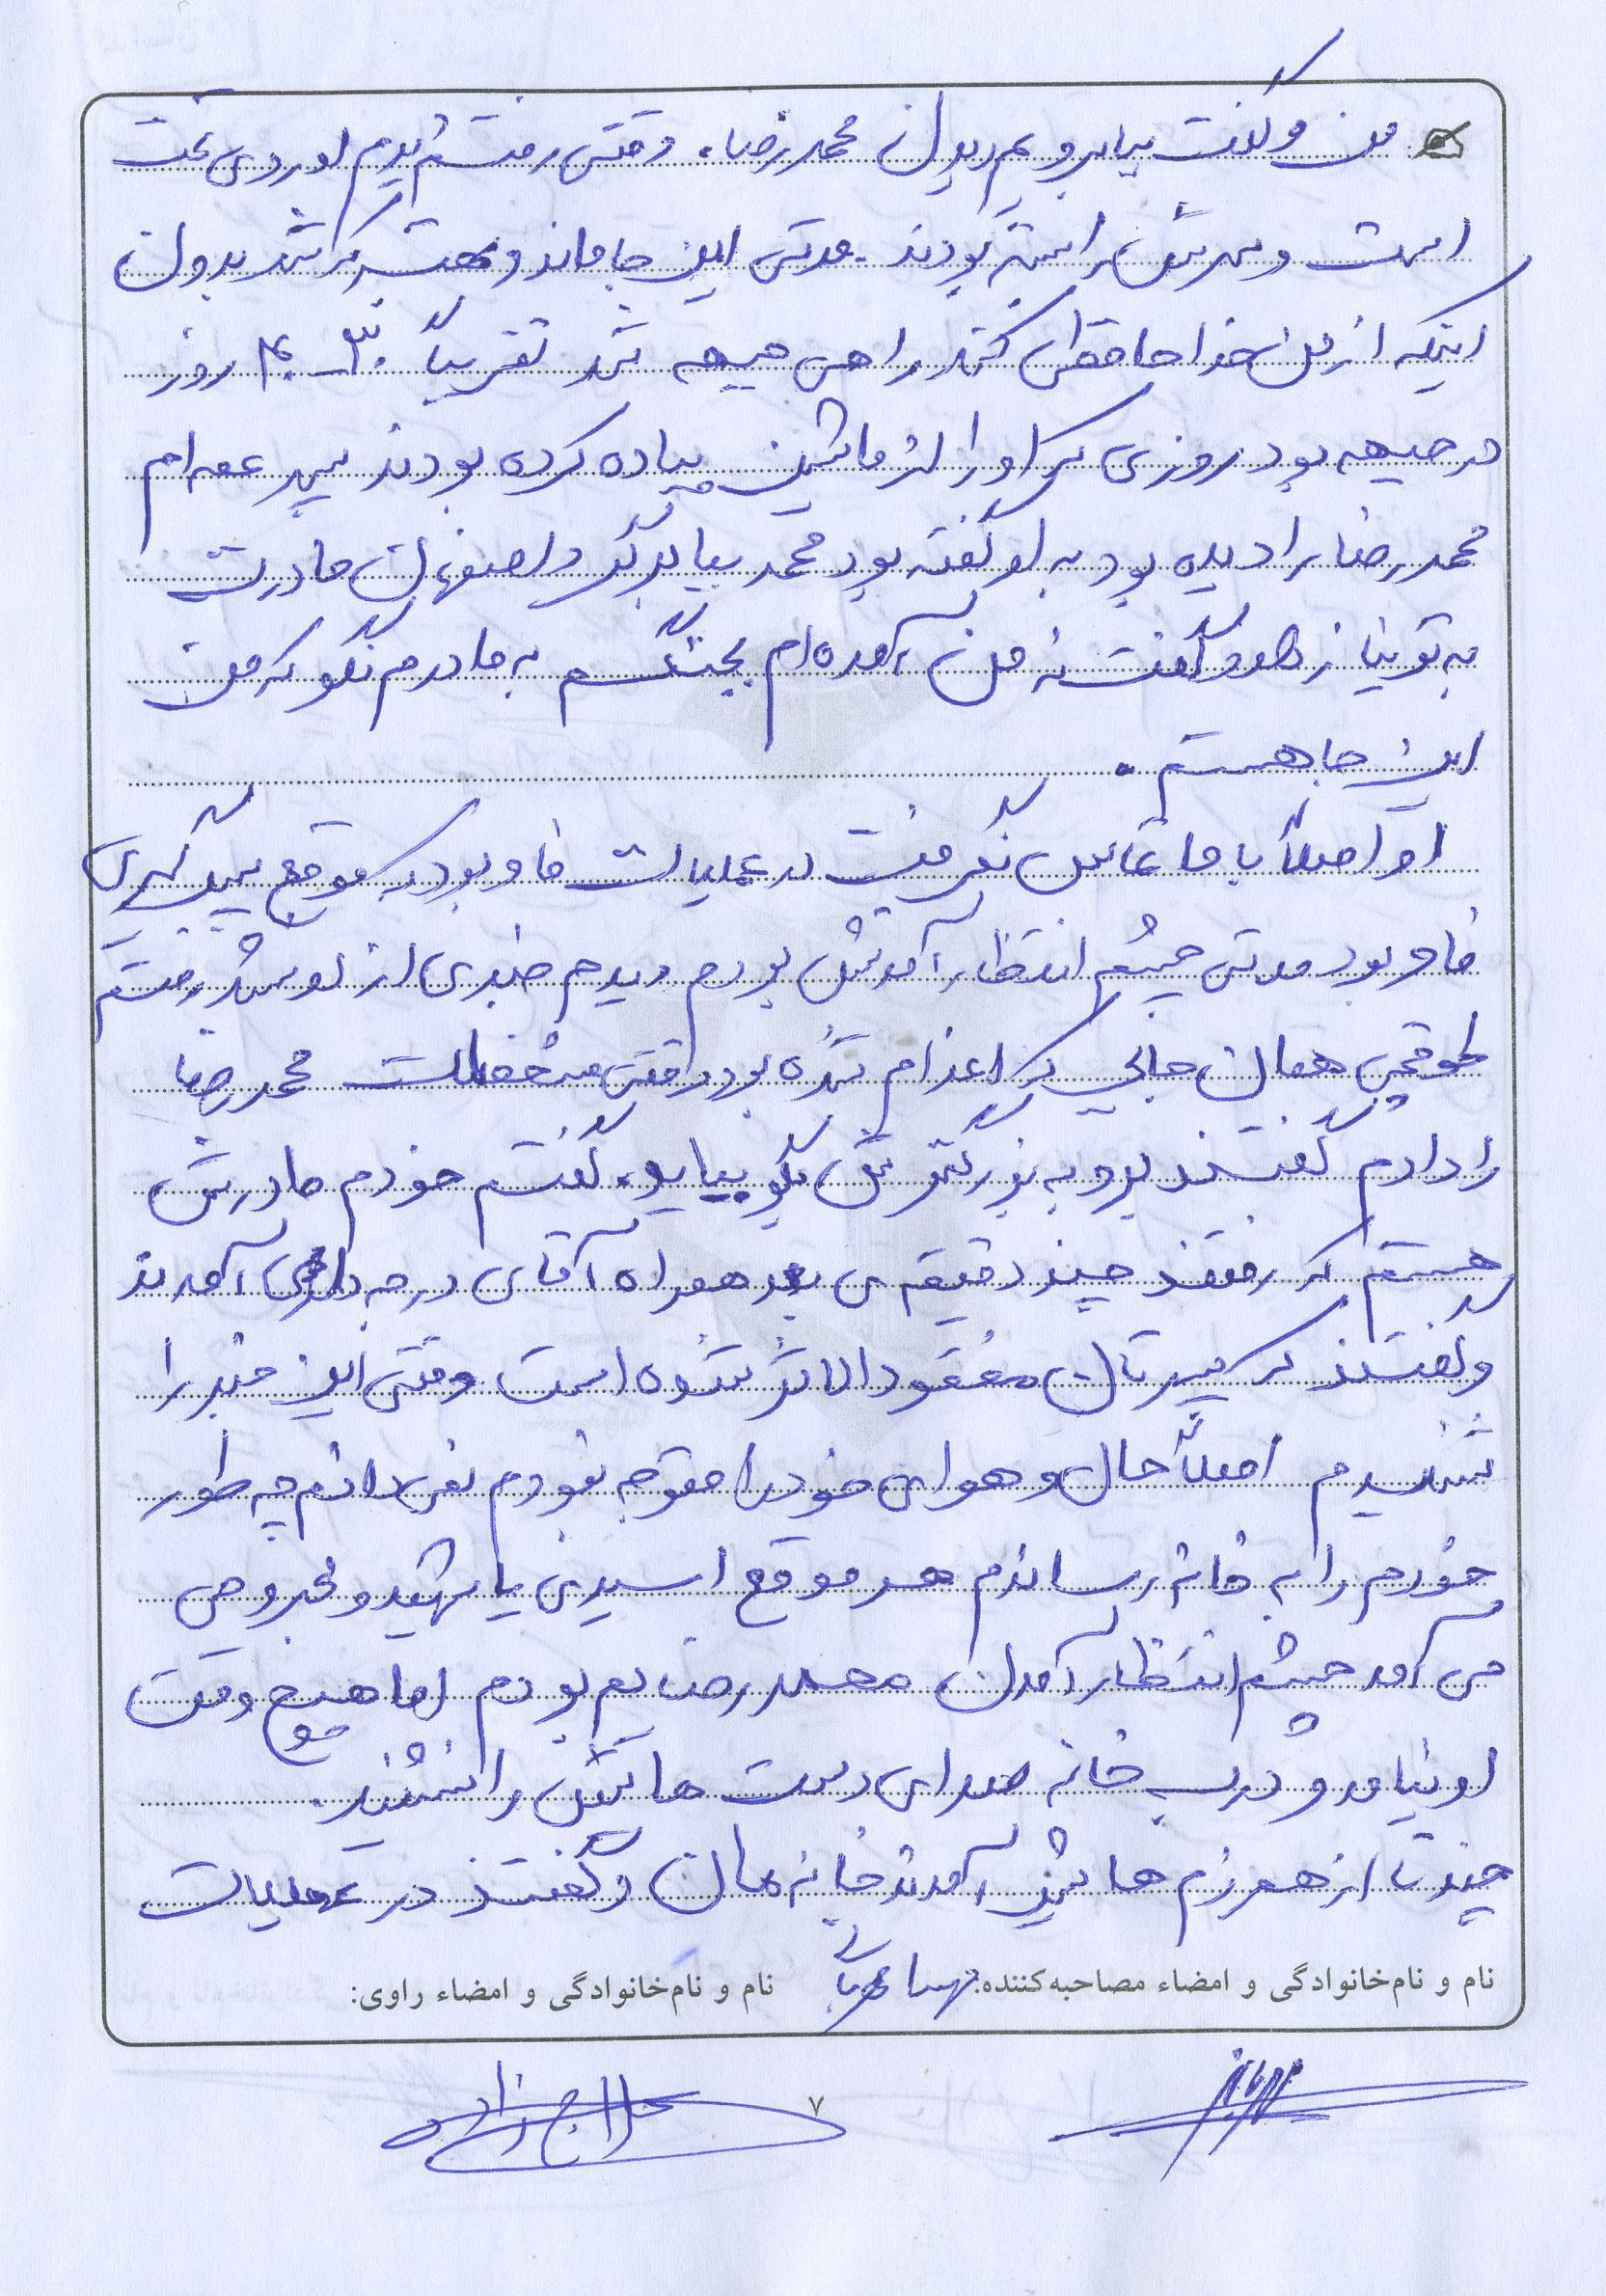 من و گفت بیا برویم دیدن محمدرضا. وقتی رفتم دیدم او روی تخت
است و سرش را بسته بودند. مدتی این جا ماند و بهتر که شد بدون
اینکه از من خداحافظی کند راهی جبهه شد تقریباً ۳۰ـ۴۰ روز
در جبهه بود روزی که او را از ماشین پیاده کرده بودند پسر عمه ام
محمدرضا را دیده بود به او گفته بود محمد بیا برگرد اصفهان مادرت
به تو نیاز دارد و گفت نه من آمده ام بجنگم به مادرم نگو که من
این جا هستم.
او اصلاً با ما تماس نگرفت در عملیات فاو بود که موقع پس گیری
فاو بود مدتی چشم انتظار آمدنش بودم دیدم خبری از او نشد رفتم
طوقچی همان جایی که اعزام شده بود وقتی مشخصات محمدرضا
را دادم گفتند برو به بزرگترش بگو بیاید، گفتم خودم مادرش
هستم که رفتند چند دقیقه ی بعد همراه آقای درجه داری آمدند
و گفتند که پسرتان مفقودالاثر شده است وقتی این خبر را
شنیدم اصلاً حال و هوای خود را متوجه نبودم نمی دانم چه طور
خودم را به خانه رساندم هر موقع اسیری یا شهید و مجروحی
می آمد چشم انتظار آمدن محمدرضایم بودم اما هیچ وقت
او نیامد و درب خانه صدای دست هایش را نشنید.
چند تا از همرزم هایش آمدند خانه مان و گفتند در عملیات
نام و نام‌خانوادگی و امضاء مصاحبه‌کننده: مهسا نام و نام‌خانوادگی و امضاء راوی:
۷